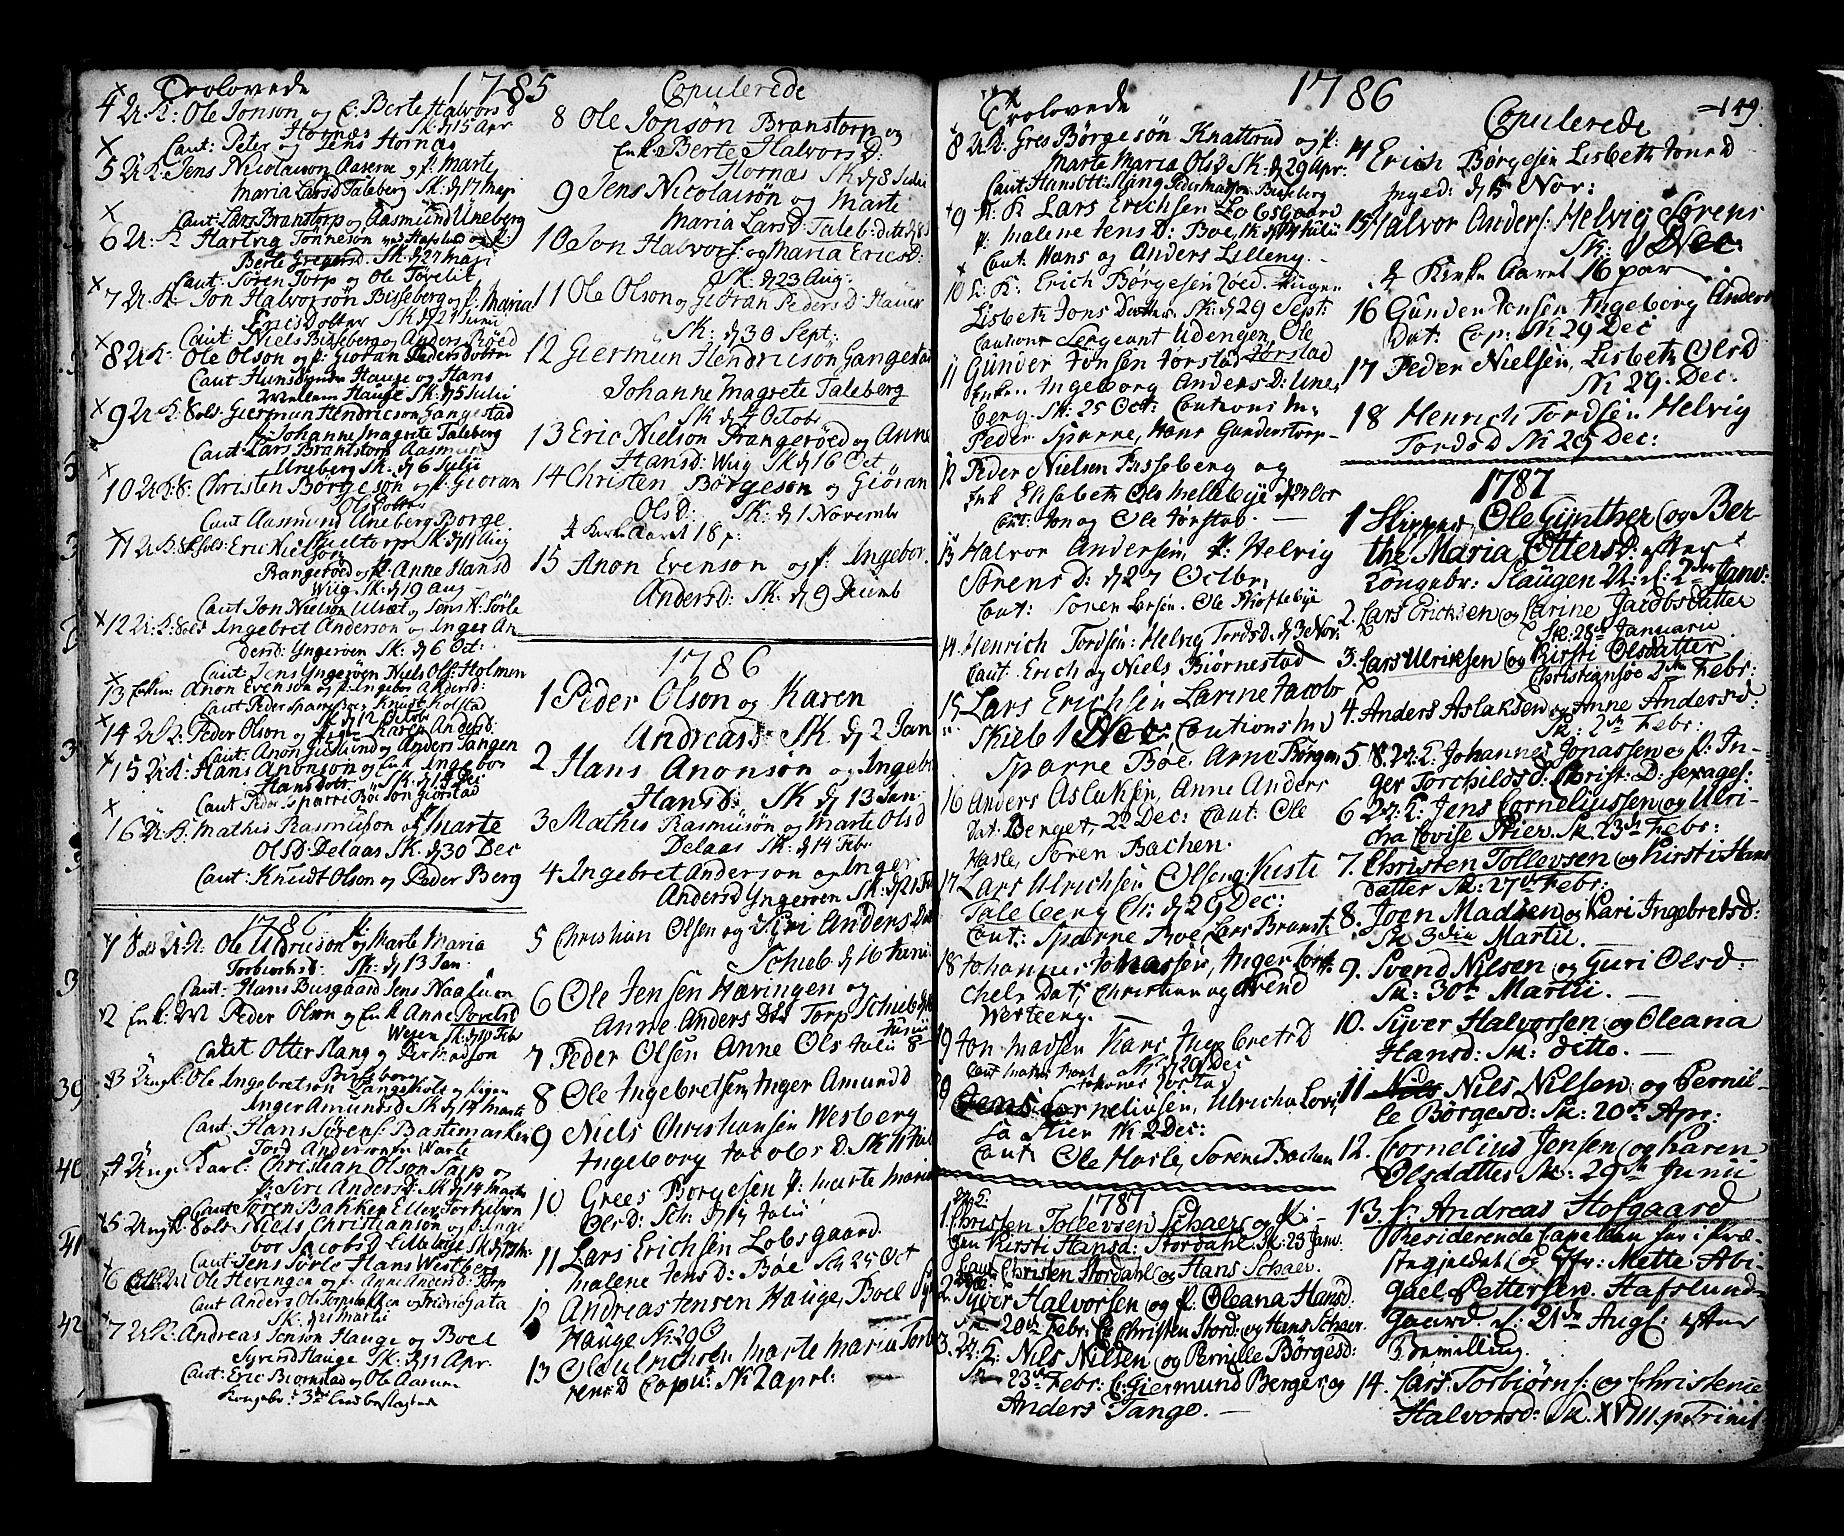 Trolovede 1785
4 U: K: Ole Jonson og E: Berte Halvorsd
Hornæs Sk: d 15 Apr
Caut: Peter og Jens Hornæs
5 U: K: Jens Nicolaison Aaserne og P: Marte
Maria Larsd Taleberg Sk: d 17 Maji
Caut: Lars Branstorp og Aasmund Uneberg
6 U: K Hartvig Tonneson ved Hafslund og P:
Berte Gregersd. Sk: d 27 Maji
Caut: Søren Torp og Ole Tøvelit
7 U: K: Jon Halvorsøn Bisseberg og P: Maria
Ericsdotter Sk d 21 Junii
Caut: Niels Bisseberg og Anders Røed
8 U: K: Ole Olson og P: Gioran Pedersdotter
Caut Hunsdynder Hauge og Hans
Willem Hauge Sk: d 5 Julii
9 U: K: 8 ols Giermun Hendricson Gangestad
P: Johanne Magrete Taleberg
Caut: Lars Branstorp Aasmun
Uneberg Sk. d 6 Julii
10 U: K: 8: Christen Børgeson og P: Gioran
Olsdotter
Caut Aasmund Uneberg Borge
11 U: K: 8 ols: Eric Nielson Skieltorp Sk: d 11 Aug
Prangerøed og P: Anne Hansd
Wiig Sk: d 19 Aug
Caut: Jon Nielson Ulset og Jens N: Sørle
12 U: K: 8 ols Ingebret Anderson og Inger An
dersd: Yngerøen Sk: d 6 Oct:
Caut: Jens Yngerøen Niels Ols: Holmen
13 Anon Evenson og P: Ingebor Andersd:
Caut: Peder Knudt Kolstad
Sk d 12 Octob
14 U: K: Peder Olson og Karen Andersd:
Caut: Anon Gislund og Anders Tangen
15 U: K: Hans Anonson og Enk Ingebor
Hansdotr Sk: d 14 Dec
Caut: Peder Sparre Bøe Jon Giørstad
16 U: K: Mathis Rasmuson og P Marte
Olsd: Delaas Sk. d 30 Dec
Caut: Knudt Olson og Peder Berg
1786
1 8 ols U: K Ole Uldricson og P: Marte Maria
Torbiørnsd: Sk: d 13 Jan:
Caut: Hans Busgaard Jens Naaluon
2 Enk: M Peder Olson og Enk Anne
Wesen Sk: d 19 Feb
Caut Otter Slang og Per Madson
Bisseberg
3 Ungk: Ole Ingebretsøn Langehols og Pigen
Inger Amundsd Sk d 14 Martii
Caut: Hans Sørens: Bastemarken
Tord Anderson Warte
4 Ungkarl: Christian Olson Sarp og
P: Siri Anders D: Sk d 14 Martii
Caut: Søren Bakken Eller Torkelson
5 Ungk 8 ols Niels Christianson og P: Inge
bor Jacobsd Lillebøye Sk d
Caut: Jens Sørle Hans Wistberg
6 Ole Hevingen og P: Anne Andersd: Torp
Caut Anders Ols Torpebakken og Fridrichsata
Sk: d 21 Martii
7 U: K: Andreas Jenson Hauge og Boel
Syrend Hauge Sk: d 11 Apr.
Caut: Eric Biørnstad og Ole Aarum
Kongebr: 3die Leed beslægtede
Copulerede
8 Ole Jonsøn Branstorp og
Enk: Berte Halvorsd:
Hornæs Sk: d 8 Julii
9 Jens Nicolaisøn og Marte
Maria Larsd Taleb: dito d 8
10 Jon Halvors: og Maria Ericsd:
Sk: d 23 Aug:
11 Ole Olson og Gioran Pedersd: Hauer
Sk: d 30 Sept:
12 Giermun Hendricson Gangestad
Johanne Magrete Taleberg
Sk d 4 Octobr
13 Eric Nielson Prangerøed og Anne
Hansd: Wiig Sk d 16 Oct
14 Christen Børgeson og Giøran
Olsd: Sk: d 1 Novembr
I Kirke Aaret 18 p:
15 Anon Evenson og P: Ingebor.
Andersd: Sk: d 9 Decemb
1786
1 Peder Olson og Karen
Andreasd: Sk. d 2 Jan
2 Hans Anonsøn og Ingebr
Hansd: Sk d 13 Jan.
3 Mathis Rasmusøn og Marte Olsd
Delaas Sk: d 14 Febr
4 Ingebret Anderson og Inger
Andersd Yngerøen Sk: d 21 Feb
5 Christian Olsen og Siri Anders Dat
Schieb d 16 Junii
6 Ole Jensen Hævingen og
Anne Anders Dtr Torp Schieb d
Junii
7 Peder Olsen Anne Ols Julii 8
8 Ole Ingebretsen Inger Amundd
9 Niels Christiansen Wesberg
Ingeborg Jacobs D. Sk
10 Grees Børgesen P: Marte Maria
Olsd: Sch: d 14 Julii
11 Lars Erichsen Lobsgaard
Malene Jens D: Bøe Sch 25 Oct
12 Andreas Jensen Hauge, Boel Sy
Hauge Sk: 29 O
13 Ole Ulrichsen Marte Maria Torb
rensd Copu: Sk 2 Apri:
Trolovede 1786
8 U: K: Gres Børgesøn Knattrud og P:
Marte Maria Olsd Sk: d 29 Apr:
Caut Hans Ott: Slang Peder Madson Bisseberg
9 U: K Lars Erichsen Lobsgaard
P: Malene Jens D: Boe, Sk. d 14 Julii
Caut: Hans og Anders Lilleng
10 U: K. Erich Børgesen Roed. Pigen
Lisbeth Jons Datter Sk: d 29 Sept:
Cautions Sergeant Udengen, Ole
Jorstad
11 Gunder Jonsen Jorstad
Enken Ingeborg Anders D: Une,
berg. Sk: 25 Oct: Cautions M:
Peder Sparre, Hans Gunderstorp
12 Peder Nielsen Bisseberg og
Enk Elisabeth Ols Mellebye d 27 Oct
Caut: Jon og Ole Jørstad.
13 Halvor Andersen, P: Helvig
Sørens D: d 27 Octbr,
Caut: Soren Lersen. Ole Skoftebye
14 Henrich Tordsen: Helvig Tordsd. d 3 Nov.
Caut: Erich og Niels Biørnestad
15 Lars Erichsen Larine Jacobs
Skieb 1 Dec: Cautions M
Sparre Bøe Arne Torgen
16 Anders Aslaksen, Anne Anders
Dat: Berget, 22 Dec: Caut: Ole
Hasle, Soren Bachen.
17 Lars Ulrichsen Olseng Kisti
Taleberg Ch: d 29 Dec:
Caut: Sparre Boe Lars Branst:
18 Johannes Jonassen, Inger Tort
chels Dat; Christian og Svend
Werteeng.
19 Jon Madsen Kari Ingebretsd
Sk: d 29 Dec
Johannes Jorstad
20 Jens Cornelivsen, Ulricha Lovi,
sa Stier Sk 2 Dec:
Caut: Ole Hasle, Soren Bachen
1787
1 Christen Tollevsen Schaer og Pi-
gen Kirsti Hansd: Stordahl Sk: 23 Janv
Caut Christen Stordahl og Hans Schaer.
2 Syver Halvorsen og P. Oleana Hansd:
Sk 20 Febr: C Christen Stord: og Hans Schaer.
3. U: K: Nils Nilsen og Pernille Børgesd:
Sk 23de Febr: C: Giermund Berger og
Anders Tange.
149.
Copulerede
14 Erich Børgesen Lisbeth Jonsd
Inged: d 15 Nov:
15 Halvor Anders: Helvig Sørens
Sk: 1 Dec:
I Kirke Aaret 16 par
16 Gunder Jonsen Ingeborg Anders
Dat: Cop: Sk 29 Dec
17 Peder Nielsen, Lisbeth Olsd
Sk 29. Dec:
18 Henrich Tordsen Helvig
Tordsd Sk 29 Dec:
1787
1 Skipper Ole Günther og Ber-
the Maria Ottersd: efter
Kongebr: Slaugen U: d: 2den Janv:
2. Lars Ericksen og Larine Jacobsdatter
Sk: 28de Januarii
3. Lars Ulriksen og Kirsti Olsdatter
Christiansøe 2den Febr:
4. Anders Aslaksen og Anne Andersd:
Sk: 2den Febr:
5 8. U: K: Johannes Jonassen og P. In-
ger Torchildsd: Christ: D: sexages:
6 U: K: Jens Corneliussen og Ulri-
cha Lovise Stier Sk. 23de Febr:
7. Christen Tollevsen og Kirsti Hans
datter Sk: 27de Febr:
8. Joen Madsen og Kari Ingebretsd:
Sk 3die Martii.
9. Svend Nilsen og Guri Olsd:
Sk: 30te Martii.
10. Syver Halvorsen og Oleana
Hansd: Sk: ditto.
11 Nils Nilsen og Pernil-
le Børgesd: Sk: 20de Apr:
12. Cornelius Jensen og Karen
Olsdatter Sk: 29de Junii
13 Hr Andreas Hofgaard
Residerende Capellan her i Præ-
stegieldet og Jfr: Mette Abi-
gael Pettersen. Hafslund-
Gaard d. 21de Aug: efter
Bevilling.
14. Lars Torbiørns: og Christenie
Halvorsd: Sk. XVIII. p. Trinit: